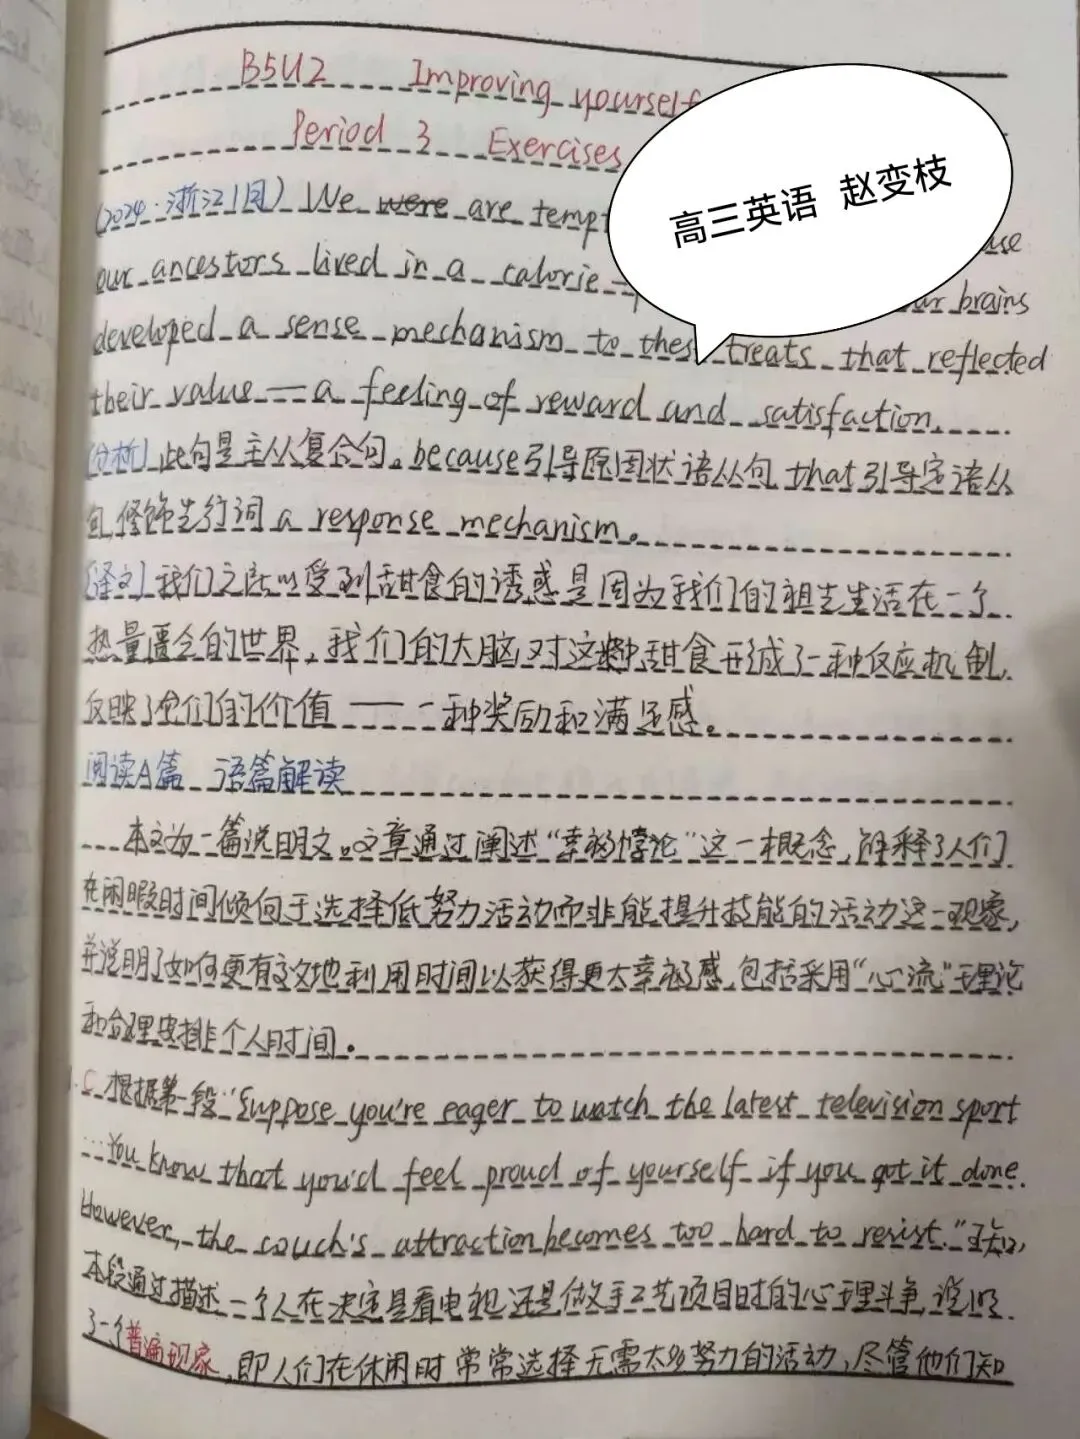 B5U2 Improving yourself
Period 3 Exercises
高三英语 赵变枝
(2024·浙江1月) We were are tempt
our ancestors lived in a calorie- our brains
developed a sense mechanism to thes treats that reflected
their value — a feeling of reward and satisfaction.
[分析] 此句是主从复合句。because引导原因状语从句, that引导定语从
句, 修饰先行词 a response mechanism。
[译文] 我们之所以受到甜食的诱惑是因为我们的祖先生活在一个
热量匮乏的世界, 我们的大脑对这种甜食形成了一种反应机制,
反映了它们的价值 —— 一种奖励和满足感。
阅读A篇 语篇解读
本文为一篇说明文。文章通过阐述“幸福悖论”这一概念, 解释了人们
在闲暇时间倾向于选择低努力活动而非能提升技能的活动这一现象,
并说明了如何更有效地利用时间以获得更大幸福感, 包括采用“心流”理论
和合理安排个人时间。
1. C 根据第一段“Suppose you're eager to watch the latest television sport
...You know that you'd feel proud of yourself if you got it done.
However, the couch's attraction becomes too hard to resist.”可知,
本段通过描述一个人在决定是看电视还是做手工艺项目时的心理斗争, 说明
了一个普遍现象, 即人们在休闲时常常选择无需太多努力的活动, 尽管他们知